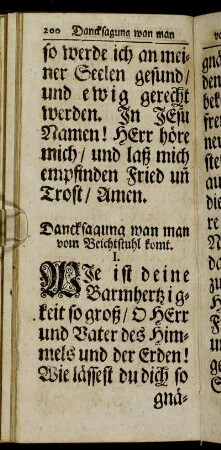 200 Dancksagung wan man
so werde ich an mei-
ner Seelen gesund/
und ewig gerecht
werden. In JEsu
Namen! HErr höre
mich/ und laß mich
empfinden Fried uñ
Trost/ Amen.
Dancksagung wan man
vom Beichtstuhl komt.
I.
WJe ist deine
Barmhertzig-
keit so groß/ O HErr
und Vater des Him-
mels und der Erden!
Wie lässest du dich so
gnä-